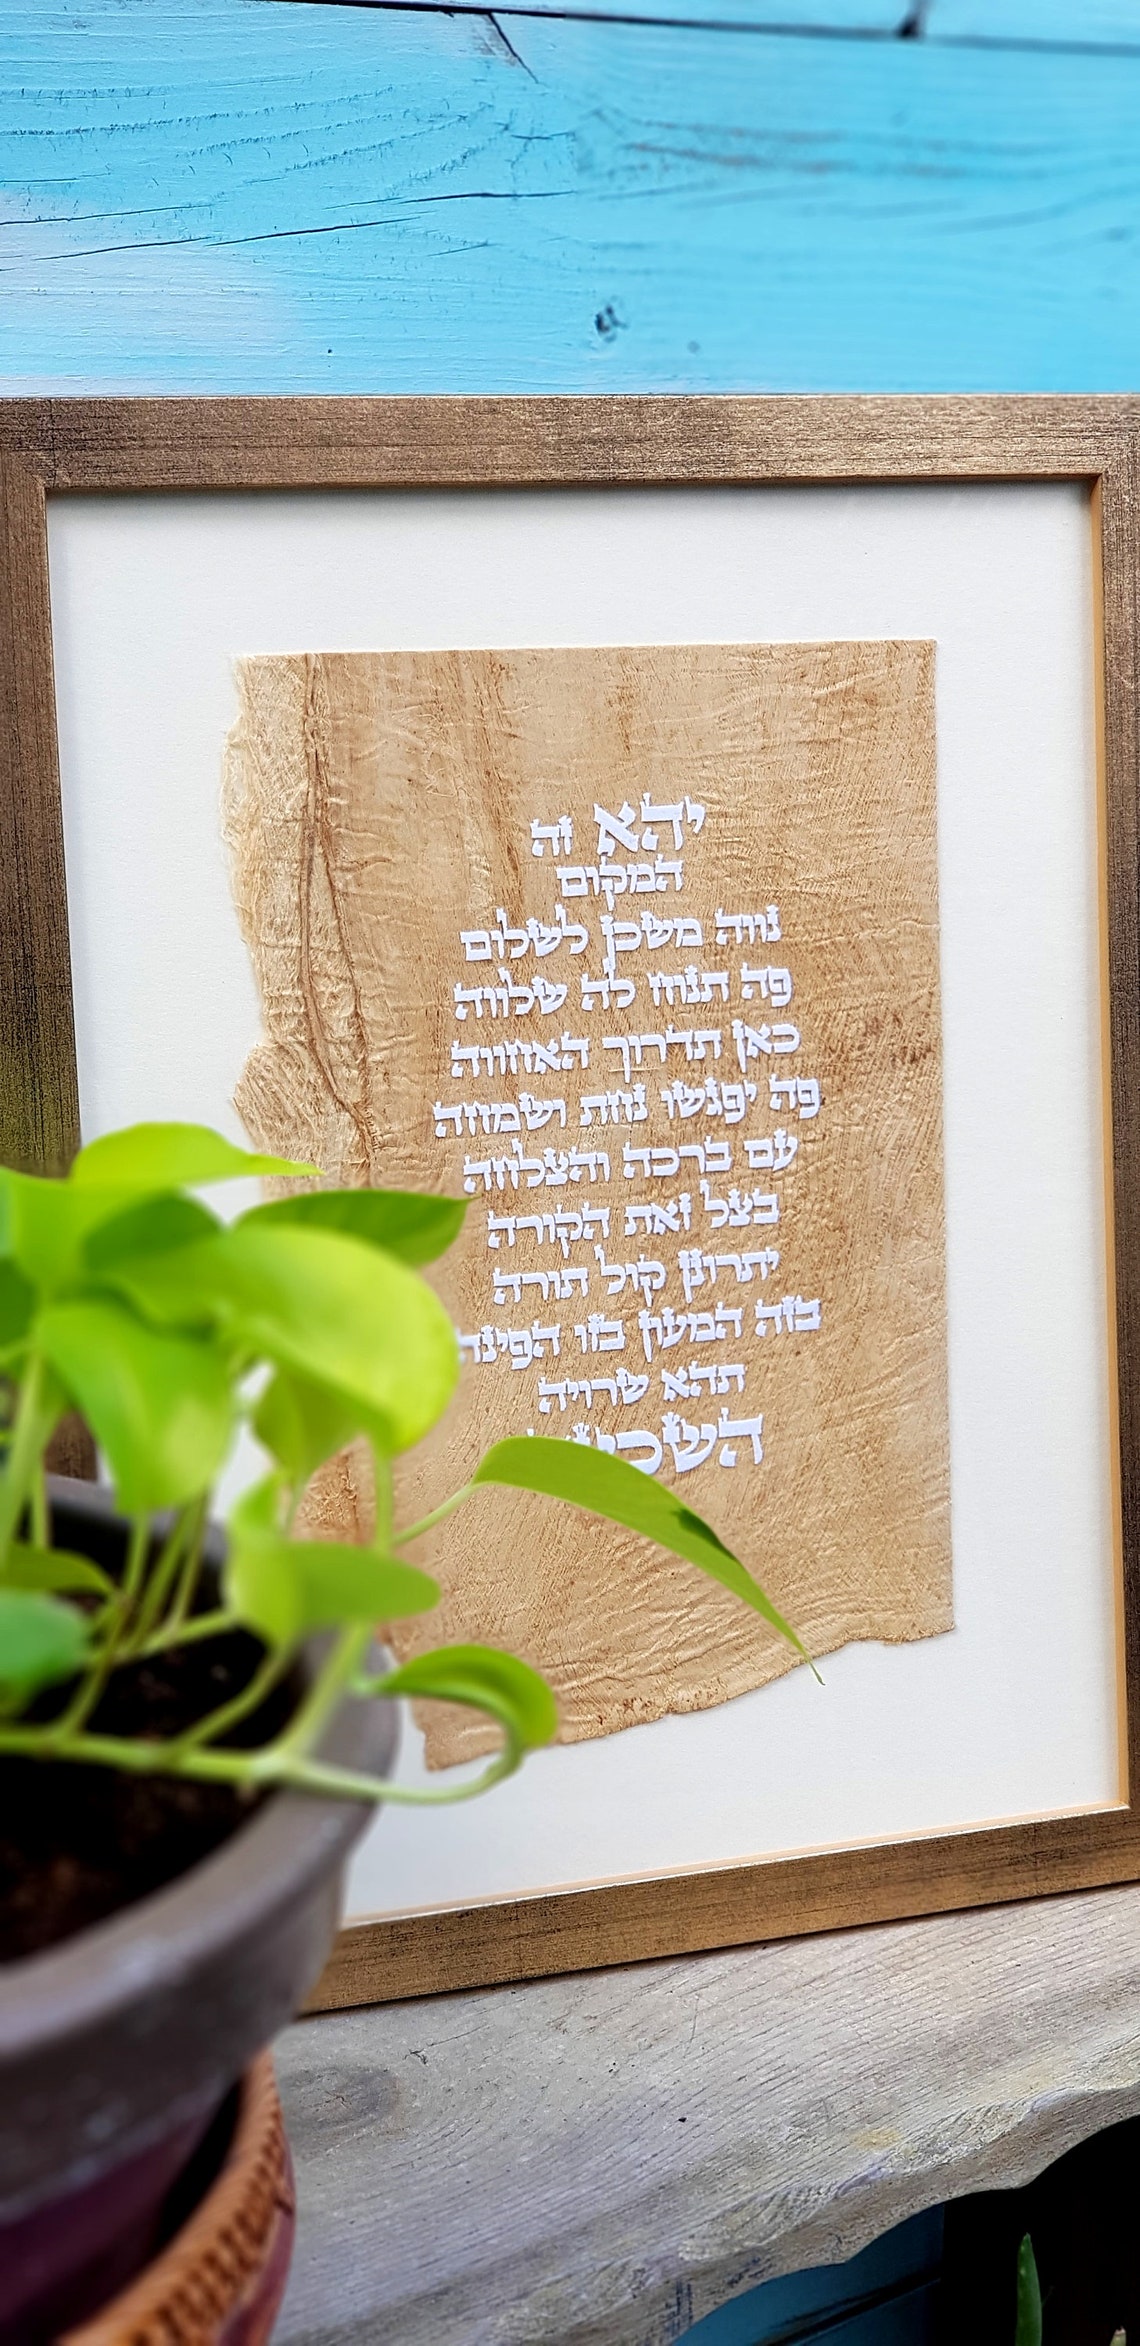 יהא זה
המקום
נווה משכן לשלום
פה תנוח לה שלווה
כאן תדרוך האחווה
פה יפגשו נחת ושמחה
עם ברכה והצלחה
בצל זאת הקורה
יתרונן קול תורה
בזה המעון בזו הפינה
תהא שרויה